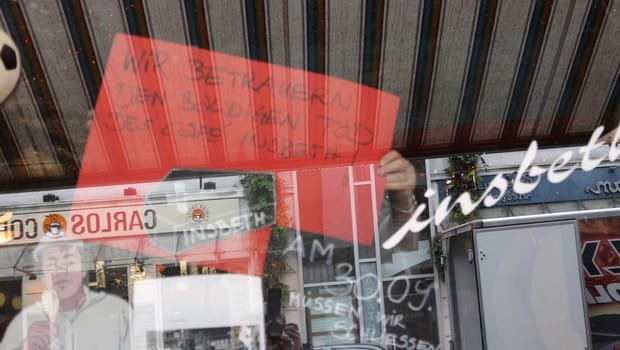 WIR BETRAUERN
DEN BALDIGEN TOD
DES CAFE INSBETH!
CARLOS CO
INSBETH
insbeth
AM
30.09.
MÜSSEN WIR
SCHLIESSEN